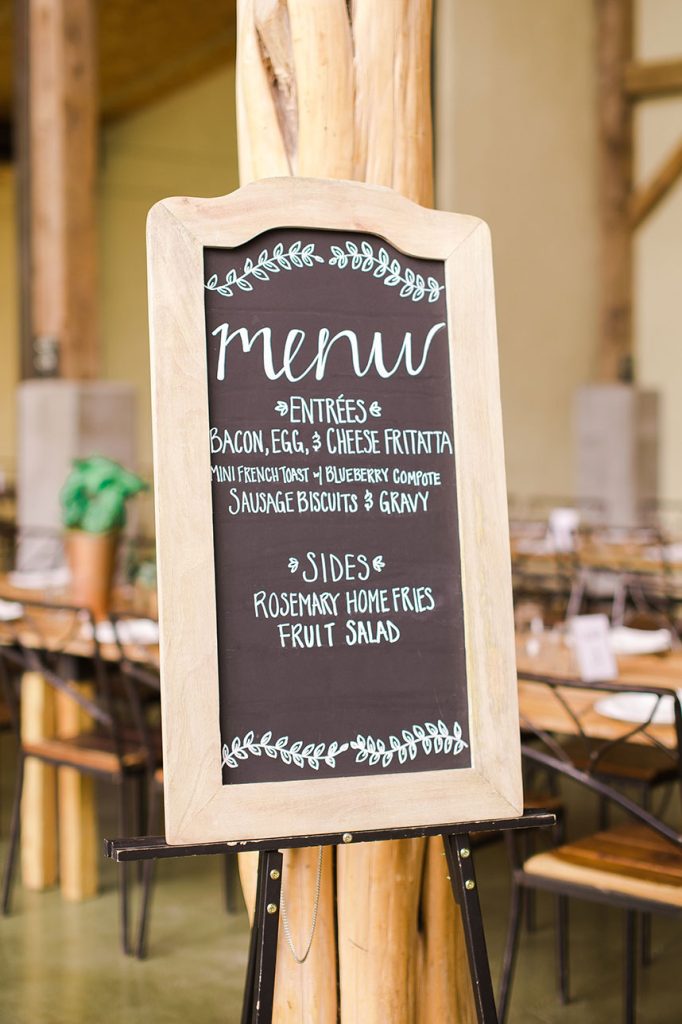 menu
ENTRÉES
BACON, EGG, & CHEESE FRITATTA
MINI FRENCH TOAST w/ BLUEBERRY COMPOTE
SAUSAGE BISCUITS & GRAVY
SIDES
ROSEMARY HOME FRIES
FRUIT SALAD